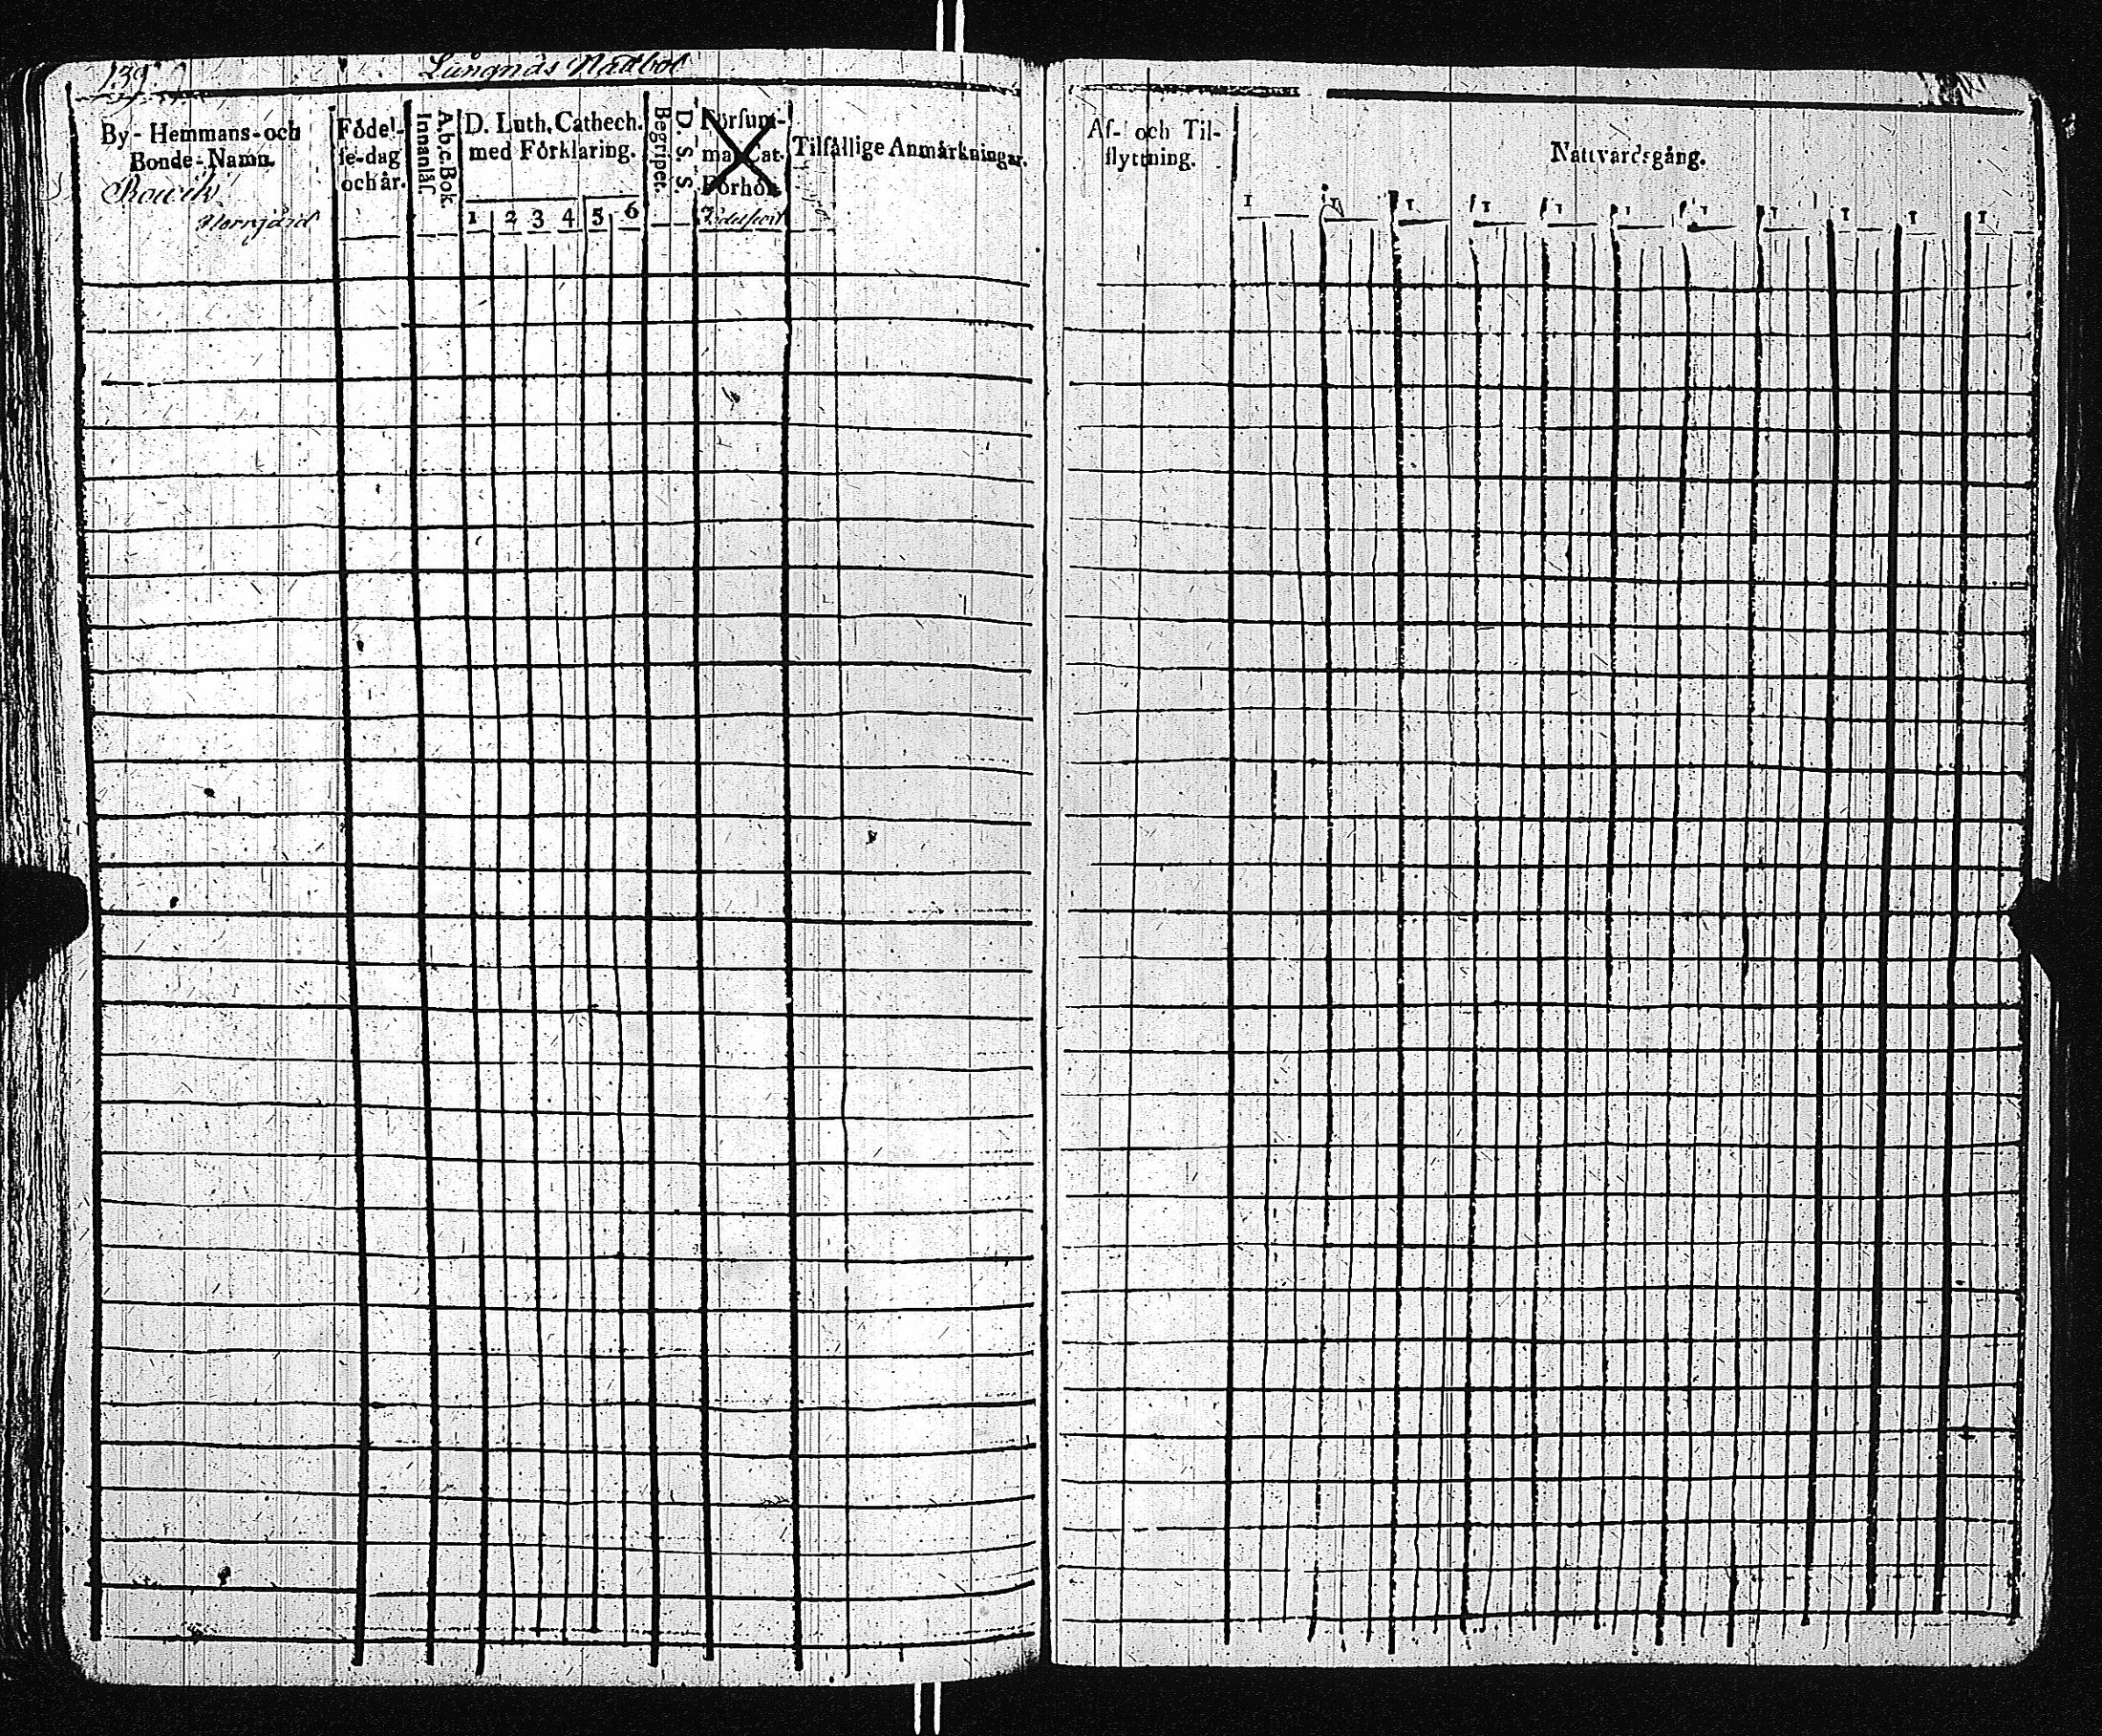 139
Lungnäs Nattbol
By- Hemmans- och
Bonde-Namn.
Födel-
se-dag
och år.
A.b.c. Bok.
Innanläs.
D. Luth. Cathech.
med Förklaring.
1 2 3 4 5 6
Begripet.
D. S. S.
Försum-
ma Cat.
Förhör.
Tilfällige Anmärkningar.
Af- och Til-
flyttning.
Nattvardsgång.
1 1 1 1 1 1 1 1 1 1 1